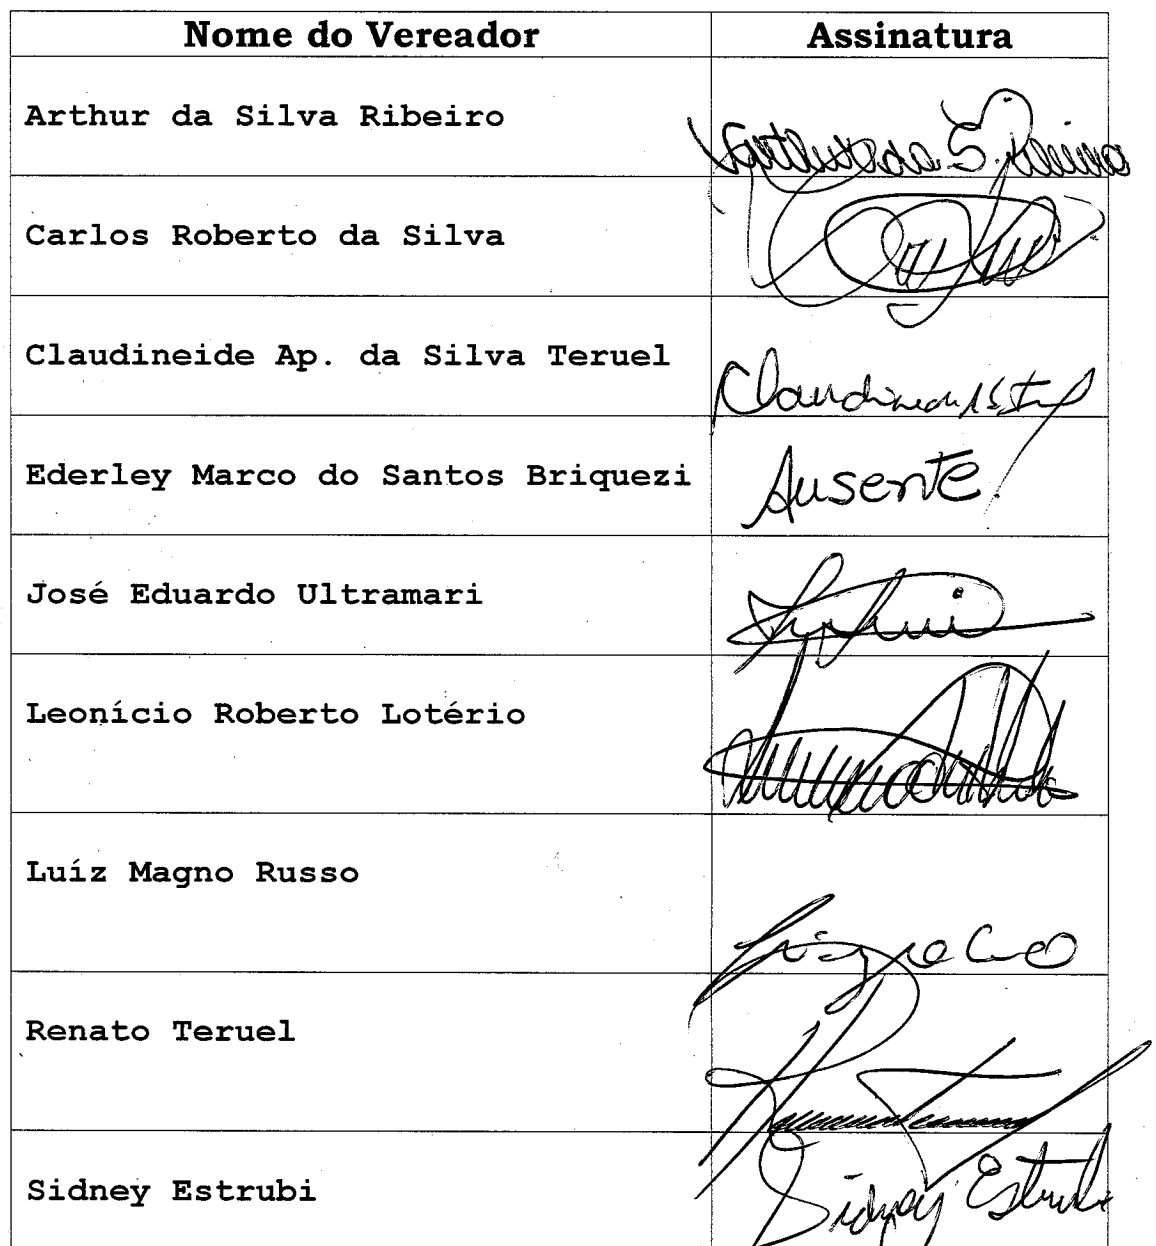 Nome do Vereador Assinatura
Arthur da Silva Ribeiro
Carlos Roberto da Silva
Claudineide Ap. da Silva Teruel
Ederley Marco do Santos Briquezi Ausente
José Eduardo Ultramari
Leonício Roberto Lotério
Luíz Magno Russo
Renato Teruel
Sidney Estrubi Sidney Estrubi